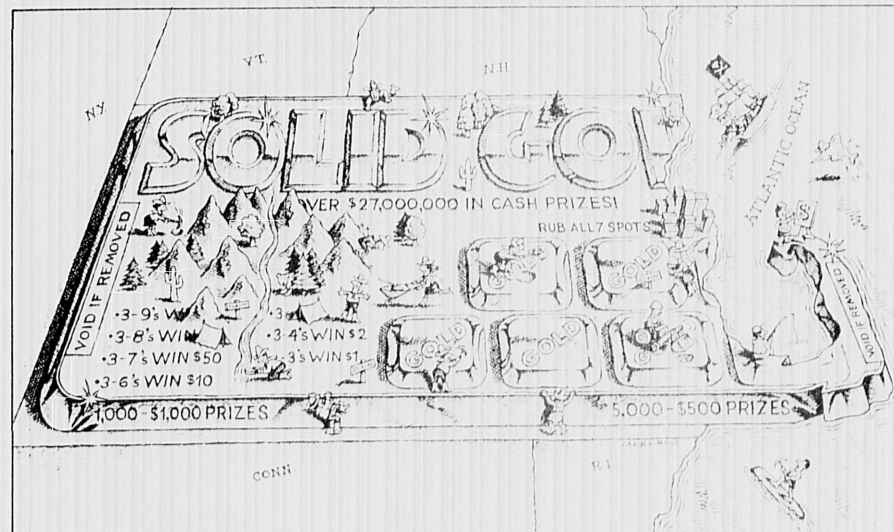 VT.
N.H.
N.Y.
ATLANTIC OCEAN
SOLID GOL
OVER $27,000,000 IN CASH PRIZES!
RUB ALL 7 SPOTS
VOID IF REMOVED
GOLD
GOLD
•3-9's W
•3-8's WIN
•3-4's WIN $2
•3-7's WIN $50
3's WIN $1
•3-6's WIN $10
GOLD
GOLD
GOLD
VOID IF REMOVED
1,000-$1,000 PRIZES
5,000-$500 PRIZES
CONN.
R.I.